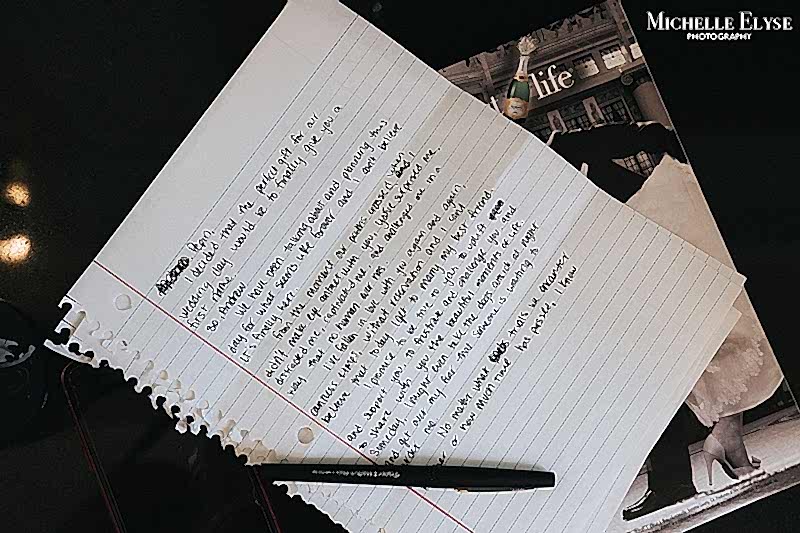 MICHELLE ELYSE
PHOTOGRAPHY
life
Pepin,
I decided that the perfect gift for our
wedding day would be to finally give you a
first name.
So, Andrew
We have been talking about and planning this
day for what seems like forever and I can't believe
it's finally here.
From the moment our paths crossed, when I
didn't make eye contact with you, you've surprised me,
distracted me, motivated me and challenged me in a
way that no human ever has.
I've fallen in love with you again and again,
countless times, without reservation and I can't
believe that today I get to marry my best friend.
I promise to be me to you, to uplift
and support you, to frustrate and challenge you and
to share with you the beautiful moments of life.
Someday I might even take the dogs out at night
and get over my fear that someone is waiting to
me. No matter what trials we encounter
or how much time has passed, I know